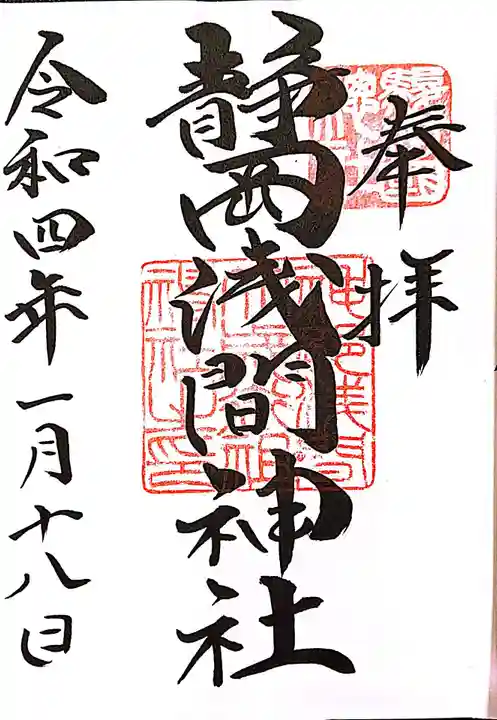 奉拝
靜西浅間神社
令和四年一月十八日